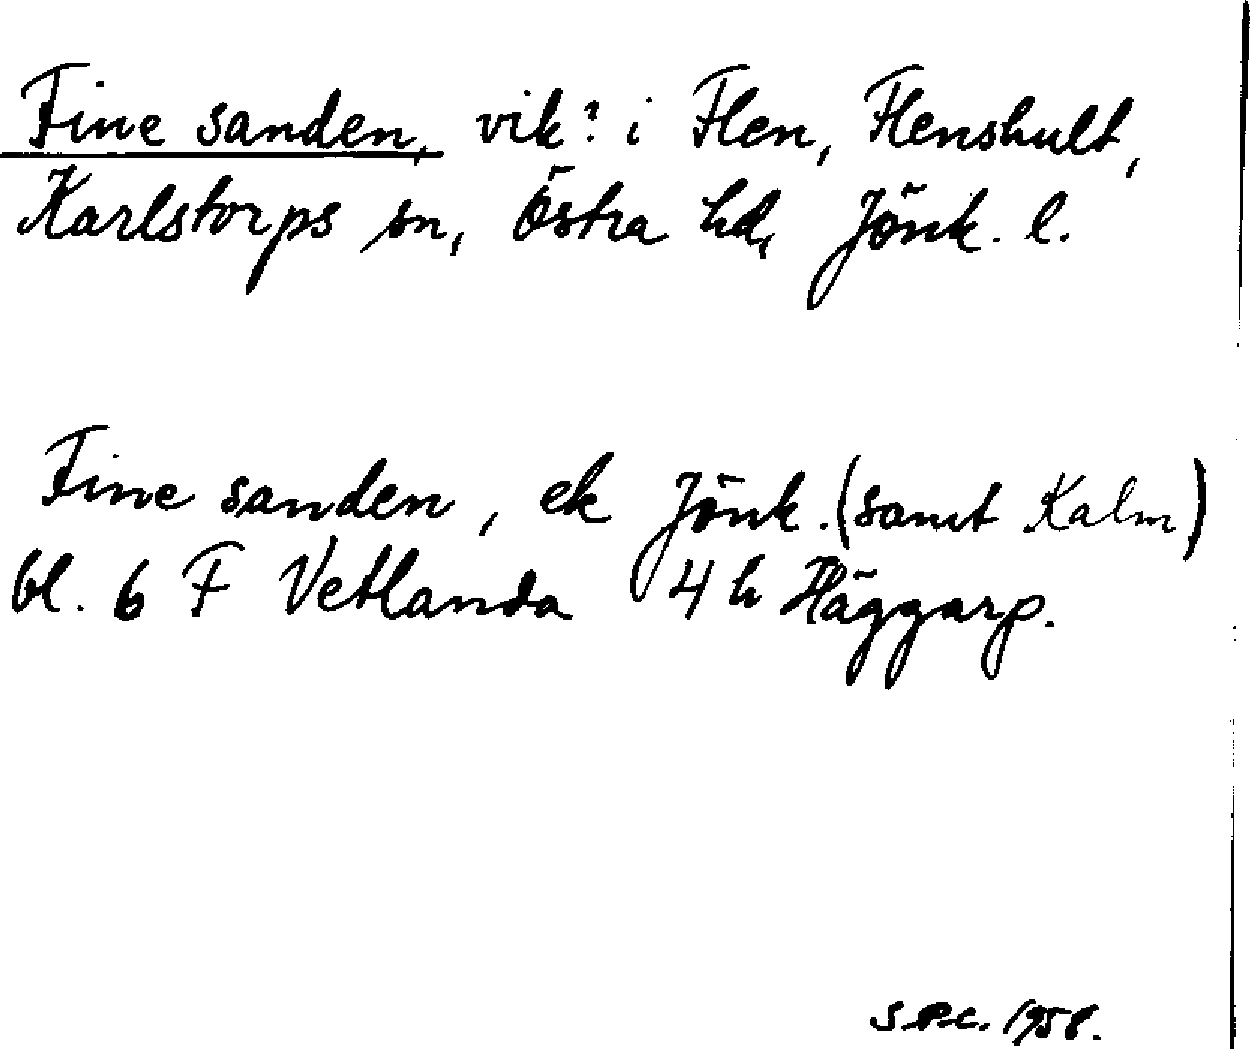 Fine sanden, vik? i Flen, Flenshult,
Karlstorps sn, Östra hd, Jönk. l.
Fine sanden, ek Jönk. (samt Kalm)
bl. 6 F Vetlanda 4 h Häggarp.
S.P.C. 1958.